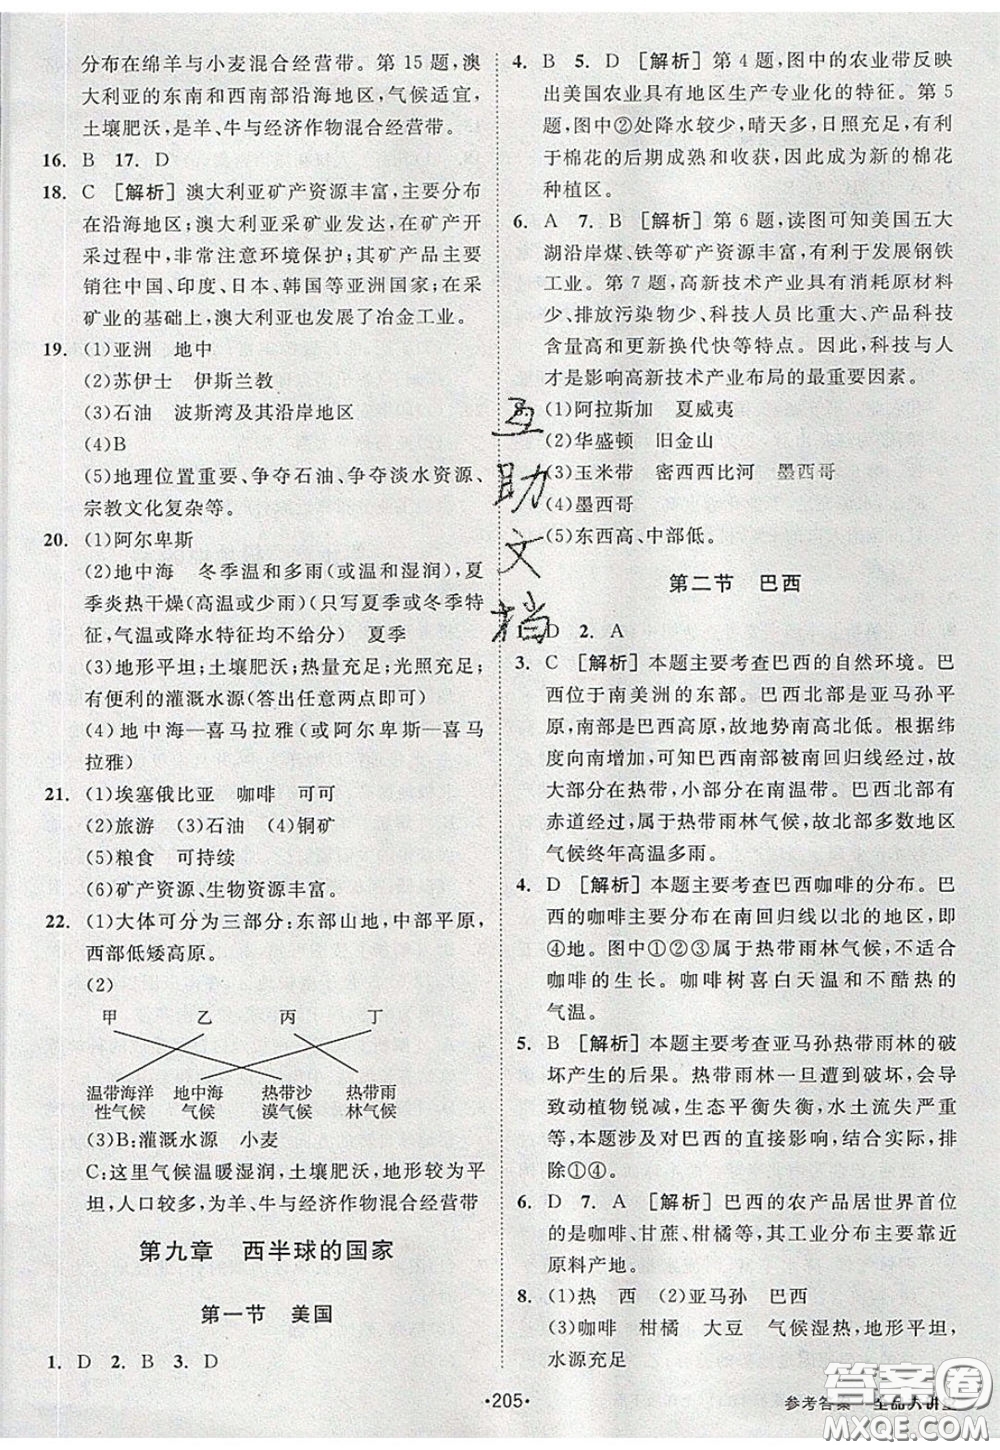 分布在绵羊与小麦混合经营带。第 15 题,澳
大利亚的东南和西南部沿海地区,气候适宜,
土壤肥沃,是羊、牛与经济作物混合经营带。
16. B 17. D
18. C [解析]澳大利亚矿产资源丰富,主要分布
在沿海地区;澳大利亚采矿业发达,在矿产开
采过程中,非常注意环境保护;其矿产品主要
销往中国、印度、日本、韩国等亚洲国家;在采
矿业的基础上,澳大利亚也发展了冶金工业。
19. (1)亚洲 地中
(2)苏伊士 伊斯兰教
(3)石油 波斯湾及其沿岸地区
(4)B
(5)地理位置重要、争夺石油、争夺淡水资源、
宗教文化复杂等。
20. (1)阿尔卑斯
(2)地中海 冬季温和多雨(或温和湿润),夏
季炎热干燥(高温少雨)(只写夏季或冬季特
征,气温或降水特征均不给分) 夏季
(3)地形平坦;土壤肥沃;热量充足;光照充足;
有便利的灌溉水源(答出任意两点即可)
(4)地中海—喜马拉雅(或阿尔卑斯—喜
马拉雅)
21. (1)埃塞俄比亚 咖啡 可可
(2)旅游 (3)石油 (4)铜矿
(5)粮食 可持续
(6)矿产资源、生物资源丰富。
22. (1)大体可分为三部分:东部山地,中部平原,
西部低矮高原。
(2)
甲 乙 丙 丁
温带海洋 地中海 热带沙 热带雨
性气候 气候 漠气候 林气候
(3)B:灌溉水源 小麦
C:这里气候温暖湿润,土壤肥沃,地形较为平
坦,人口较多,为羊、牛与经济作物混合经营带
第九章 西半球的国家
第一节 美国
1. D 2. B 3. D
4. B 5. D [解析]第 4 题,图中的农业带反映
出美国农业具有地区生产专业化的特征。第 5
题,图中②处降水较少,晴天多,日照充足,有利
于棉花的后期成熟和收获,因此成为新的棉花
种植区。
6. A 7. B [解析]第 6 题,读图可知美国五大
湖沿岸煤、铁等矿产资源丰富,有利于发展钢铁
工业。第 7 题,高新技术产业具有消耗原材料
少、排放污染物少,科技人员比重大、产品科技
含量高和更新换代快等特点。因此,科技与人
才是影响高新技术产业布局的最重要因素。
8. (1)阿拉斯加 夏威夷
(2)华盛顿 旧金山
(3)玉米带 密西西比河 墨西哥
(4)墨西哥
(5)东西高、中部低。
第二节 巴西
1. D 2. A
3. C [解析]本题主要考查巴西的自然环境。巴
西位于南美洲的东部。巴西北部是亚马孙平
原,南部是巴西高原,故地势南高北低。根据纬
度向南增加,可知巴西南部有南回归线经过,故
大部分在热带,小部分在南温带。巴西北部有
赤道经过,属于热带雨林气候,故北部多数地区
气候终年高温多雨。
4. D [解析]本题主要考查巴西咖啡的分布。巴
西的咖啡主要分布在南回归线以北的地区,即
④地。图中①②③属于热带雨林气候,不适合
咖啡的生长。咖啡树喜白天温和不酷热的
气温。
5. B [解析]本题主要考查亚马孙热带雨林的破
坏产生的后果。热带雨林一旦遭到破坏,会导
致动植物锐减,生态平衡失衡,水土流失严重
等,本题涉及对巴西的直接影响,结合实际,排
除①④。
6. D 7. A [解析]巴西的农产品居世界首位
的是咖啡、甘蔗、柑橘等,其工业分布主要靠近
原料产地。
8. (1)热 西 (2)亚马孙 巴西
(3)咖啡 柑橘 大豆 气候湿热,地形平坦,
水源充足
互助文档
·205·
参考答案 全品大讲堂
答案圈
MXQE.COM